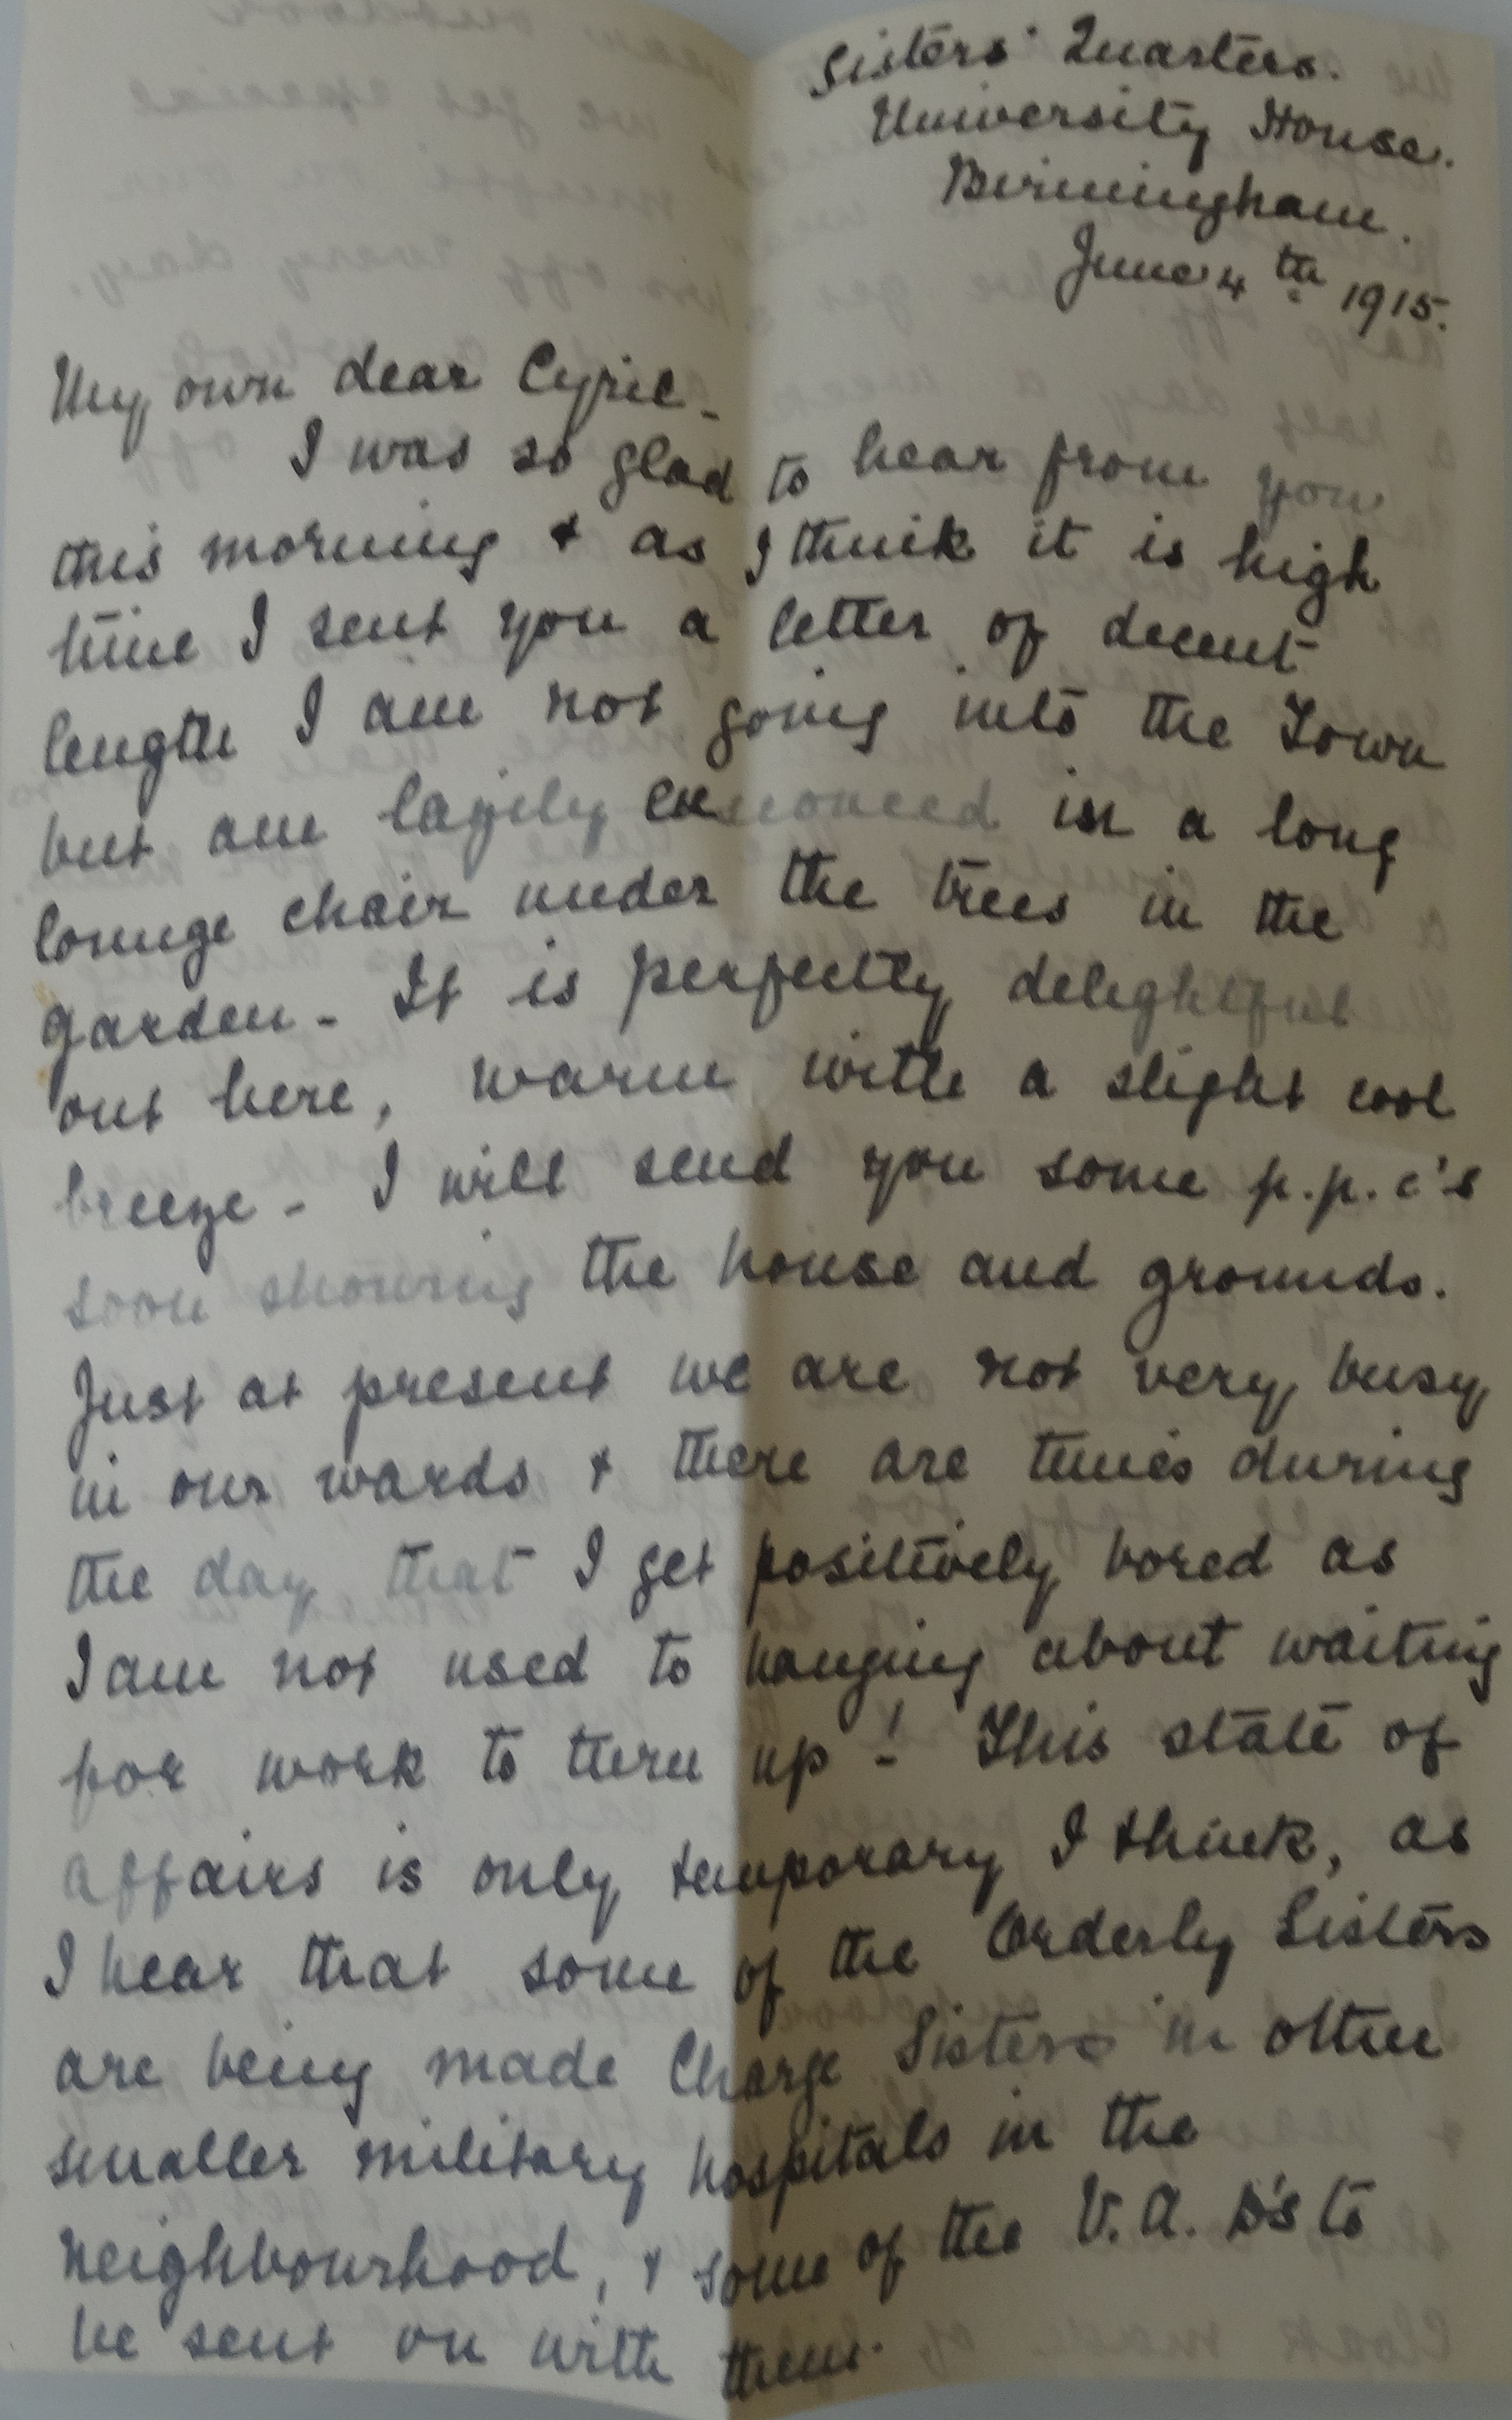 Sisters' Quarters.
University House.
Birmingham.
June 4th 1915.
My own dear Cyril -
I was so glad to hear from you
this morning & as I think it is high
time I sent you a letter of decent
length I am not going into the Town
but am lazily ensconced in a long
lounge chair under the trees in the
garden - It is perfectly delightful
out here, warm with a slight cool
breeze - I will send you some p.p.c's
soon showing the house and grounds.
Just at present we are not very busy
in our wards & there are times during
the day that I get positively bored as
I am not used to hanging about waiting
for work to turn up! This state of
affairs is only temporary I think, as
I hear that some of the Orderly Sisters
are being made Charge Sisters in other
smaller military hospitals in the
neighbourhood, & some of the V.A.D's to
be sent on with them.